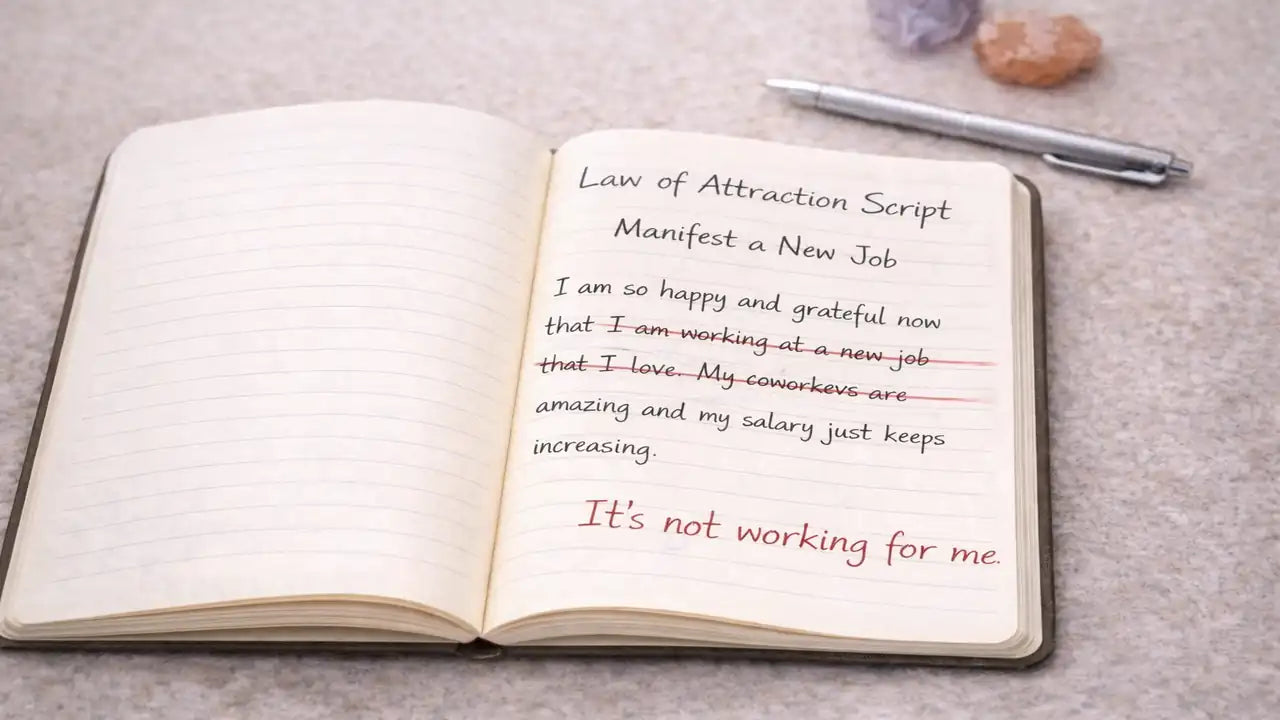 Law of Attraction Script
Manifest a New Job
I am so happy and grateful now
that I am working at a new job
that I love. My coworkevs are
amazing and my salary just keeps
increasing.
It's not working for me.